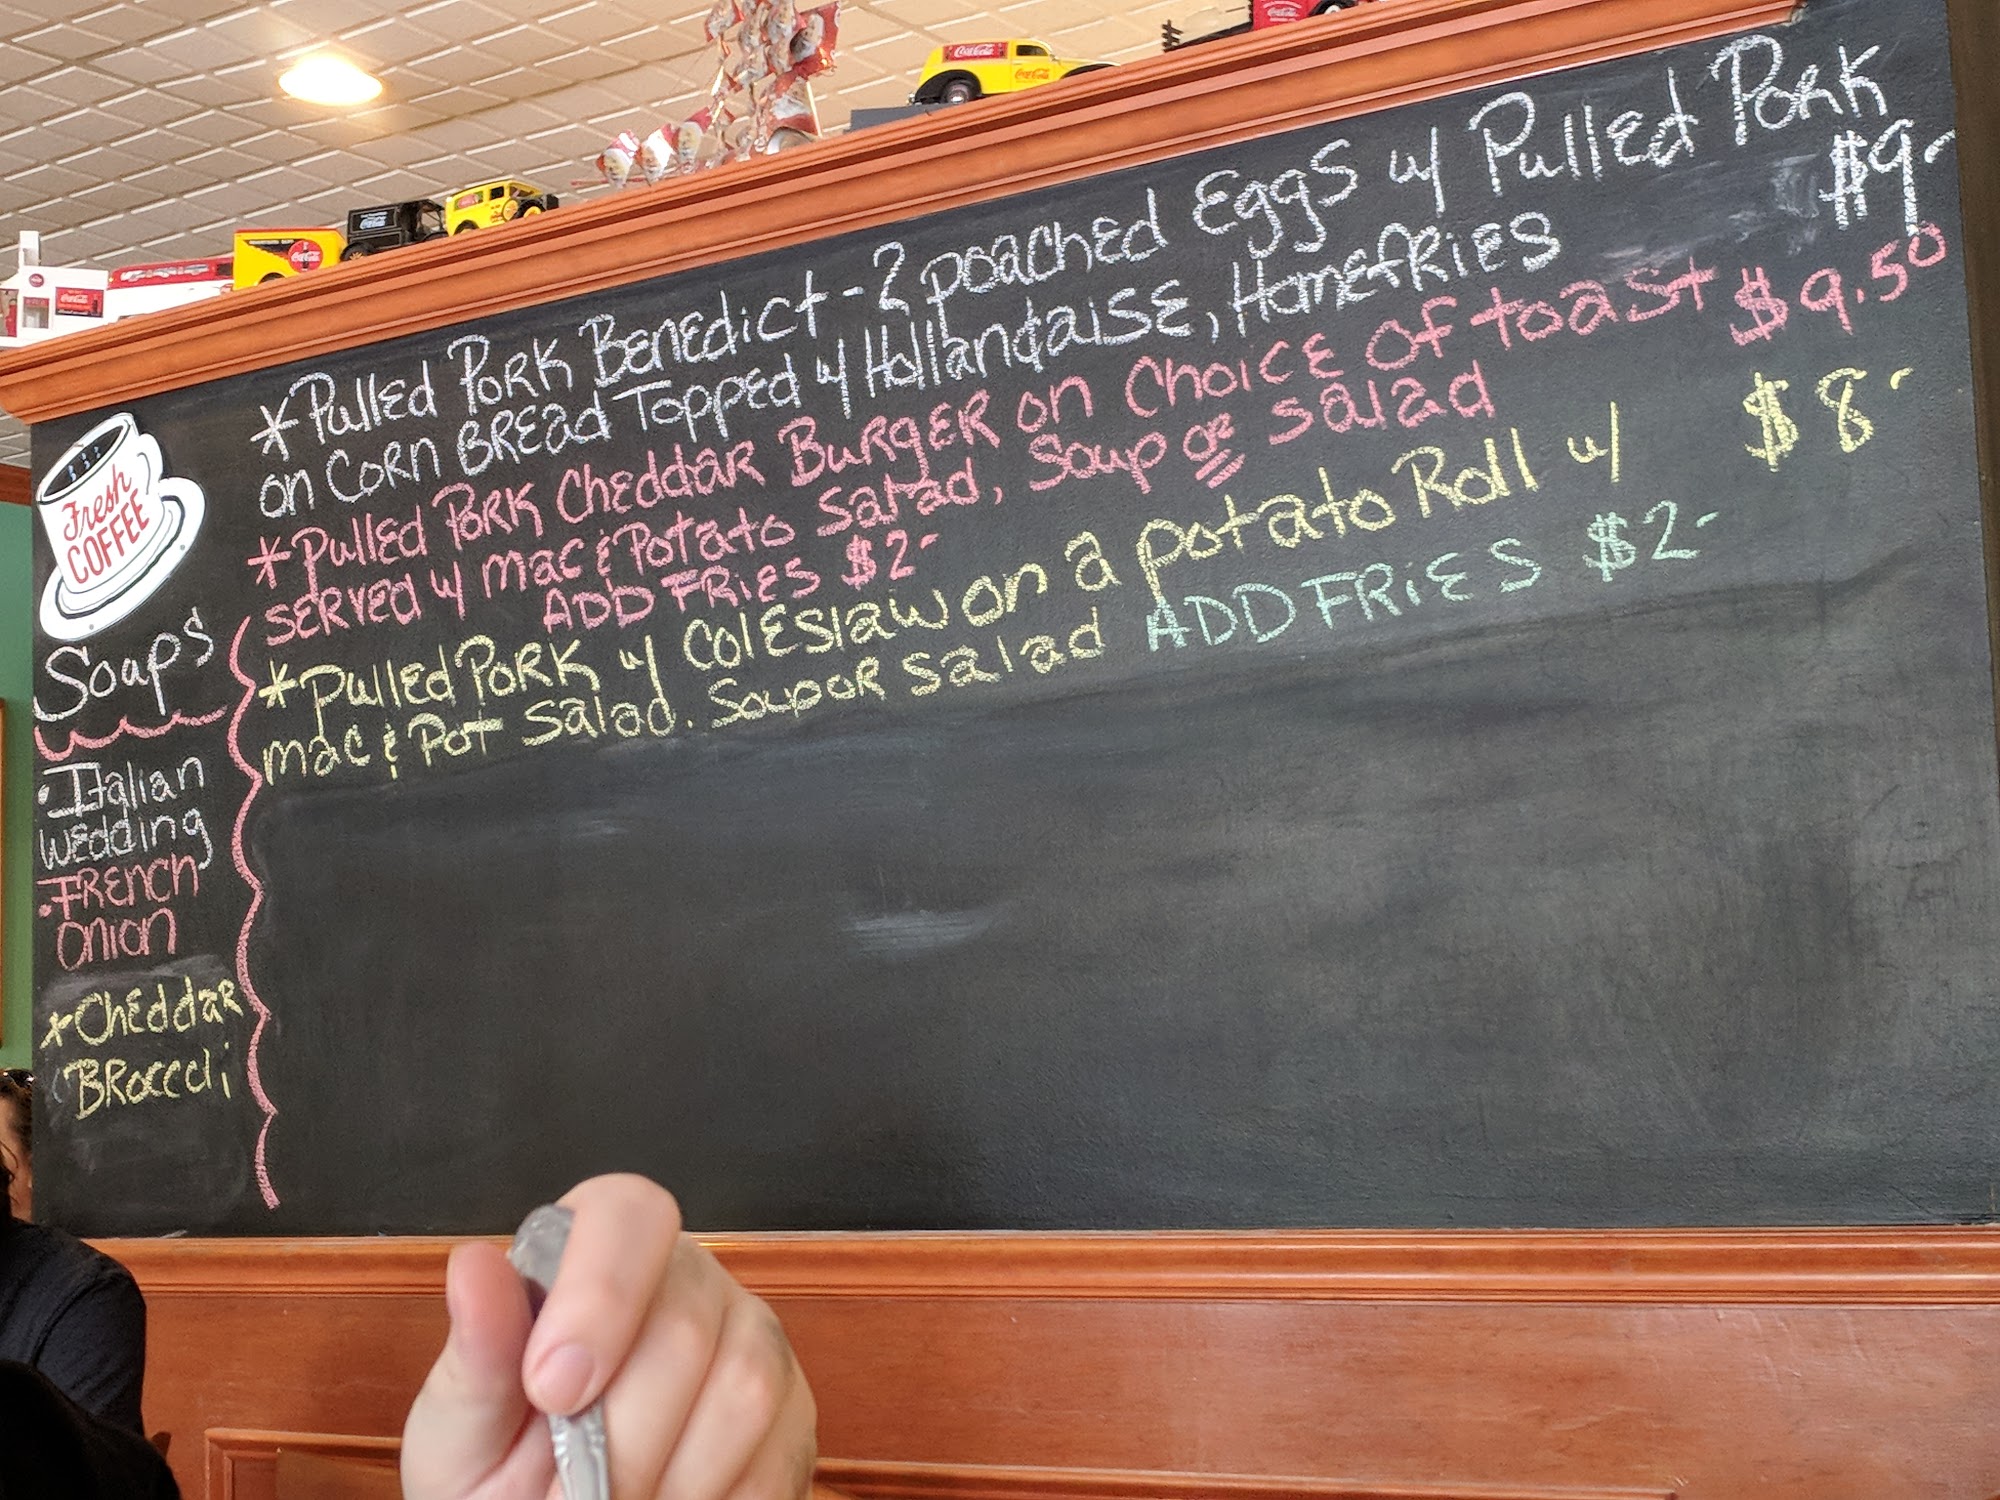 *Pulled PORK BENEdict - 2 poachEd Eggs w/ PullEd PORK
$9-
on CORN BREad Topped w/ Hollandaise, HomefRiES
*pullEd PORK ChEddar BuRgER on ChoicE of toast $9.50
SERVEd w/ mac & Potato Salad, Soup or salad
ADD FRiES $2-
*pullEd PORK w/ ColEslaw on a potato Roll w/ $8-
mac & Pot Salad. Soup OR Salad ADD FRiES $2-
Fresh
COFFEE
Soups
• Italian
wedding
• FRENCH
Onion
* ChEddaR
BRoccoli
Coca-Cola
Coca-Cola
Coca-Cola
Coca-Cola
Coca-Cola
Coca-Cola